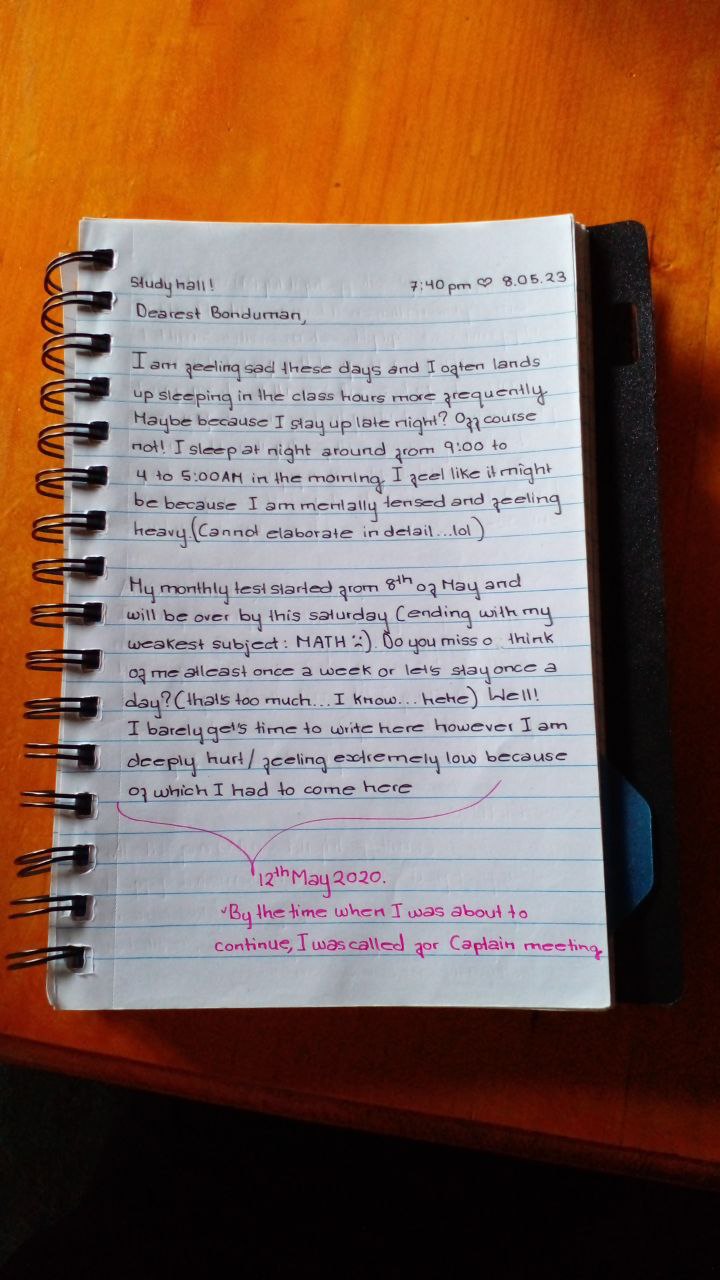 Study hall! 7:40 pm ♡ 8.05.23
Dearest Bonduman,
I am feeling sad these days and I often lands
up sleeping in the class hours more frequently
Maybe because I stay up late night? Off course
not! I sleep at night around from 9:00 to
4 to 5:00AM in the morning. I feel like it might
be because I am mentally tensed and feeling
heavy. (Cannot elaborate in detail...lol)
My monthly test started from 8th of May and
will be over by this saturday (ending with my
weakest subject: MATH :( ). Do you miss o think
of me atleast once a week or let's stay once a
day? (that's too much... I know... hehe) Well!
I barely get's time to write here however I am
deeply hurt/ feeling extremely low because
of which I had to come here
12th May 2020.
By the time when I was about to
continue, I was called for Captain meeting